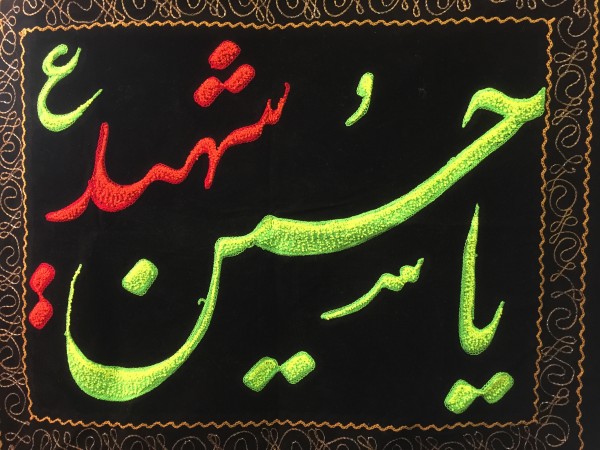 یا حسین شهید ع